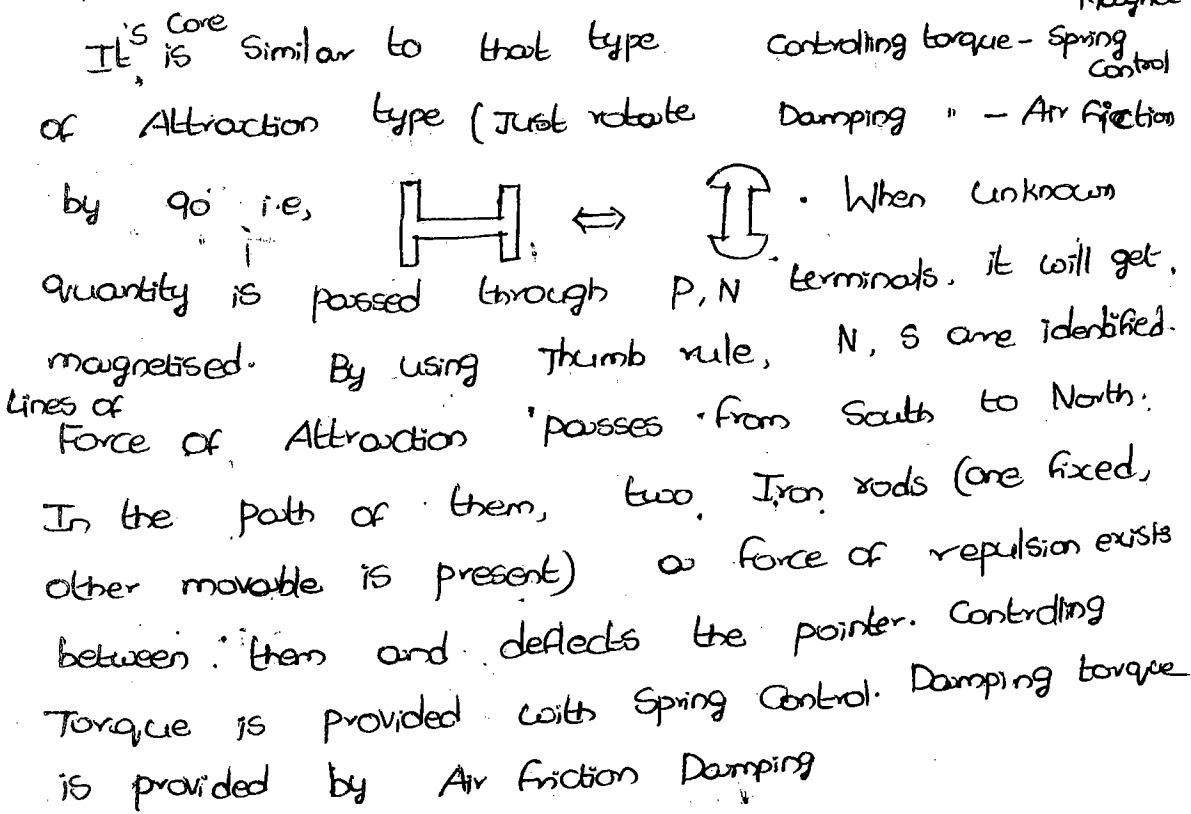 It's core is Similar to that type Controlling torque - Spring Control
of Attraction type (Just rotate Damping " - Air friction
by 90° i.e, ⇔ . When unknown
quantity is passed through P, N terminals. it will get.
magnetised. By using Thumb rule, N, S are identified.
Lines of
Force of Attraction passes from South to North.
In the path of them, two Iron rods (one fixed,
other movable is present) a force of repulsion exists
between them and deflects the pointer. Controlling
Torque is provided with Spring Control. Damping torque
is provided by Air friction Damping